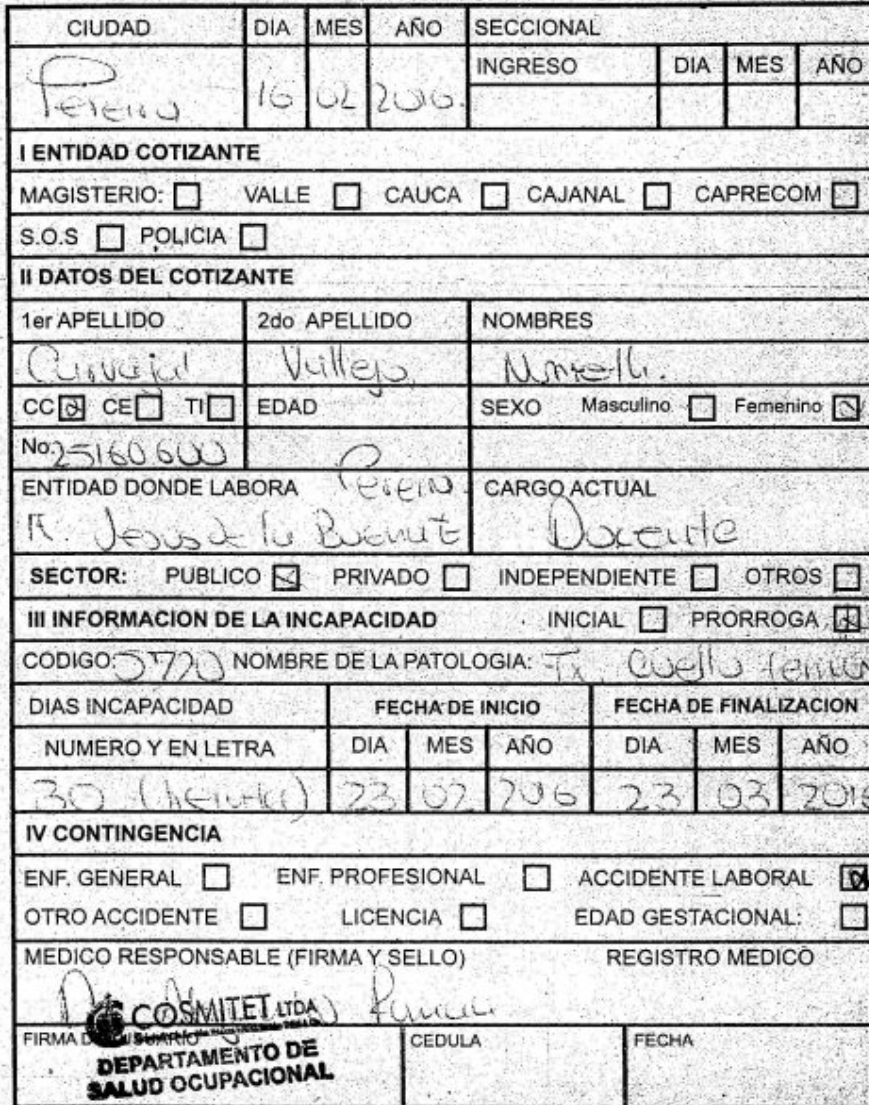 CIUDAD DIA MES AÑO SECCIONAL
INGRESO DIA MES AÑO
Pereira 16 02 2016.
I ENTIDAD COTIZANTE
MAGISTERIO: VALLE CAUCA CAJANAL CAPRECOM
S.O.S POLICIA
II DATOS DEL COTIZANTE
1er APELLIDO 2do APELLIDO NOMBRES
Carvajal Vallejo
CC CE TI EDAD SEXO Masculino Femenino
No. 25160600
ENTIDAD DONDE LABORA Pereira. CARGO ACTUAL
Jesus de la Docente
SECTOR: PUBLICO PRIVADO INDEPENDIENTE OTROS
III INFORMACION DE LA INCAPACIDAD INICIAL PRORROGA
CODIGO: S720 NOMBRE DE LA PATOLOGIA: Fx. Cuello femur
DIAS INCAPACIDAD FECHA DE INICIO FECHA DE FINALIZACION
NUMERO Y EN LETRA DIA MES AÑO DIA MES AÑO
30 (treinta) 23 02 2016 23 03 2016
IV CONTINGENCIA
ENF. GENERAL ENF. PROFESIONAL ACCIDENTE LABORAL
OTRO ACCIDENTE LICENCIA EDAD GESTACIONAL:
MEDICO RESPONSABLE (FIRMA Y SELLO) REGISTRO MEDICO
COSMITET LTDA
FIRMA DEL USUARIO CEDULA FECHA
DEPARTAMENTO DE
SALUD OCUPACIONAL